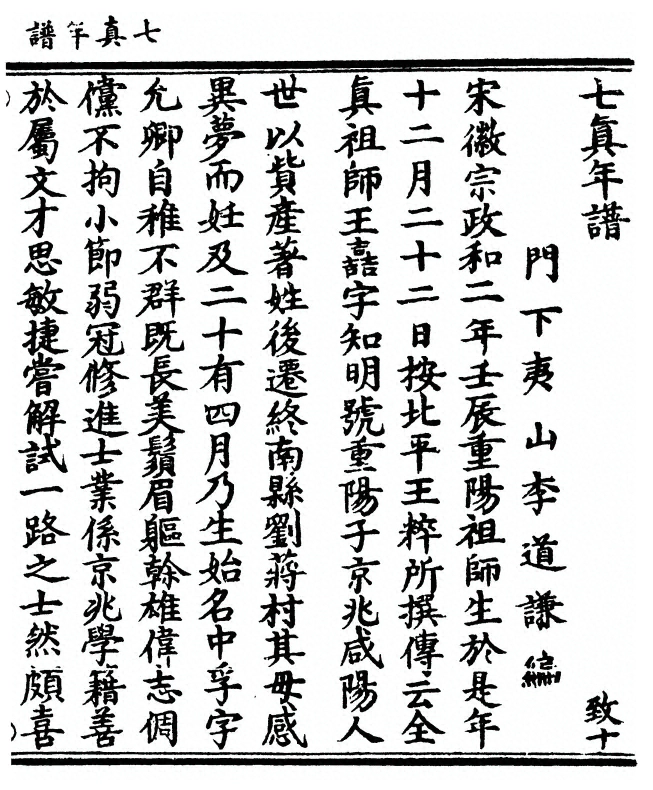 七真年譜
七眞年譜
致十
門下夷山李道謙編
宋徽宗政和二年壬辰重陽祖師生於是年
十二月二十二日按北平王粹所撰傳云全
眞祖師王嚞字知明號重陽子京兆咸陽人
世以貲產著姓後遷終南縣劉蔣村其母感
異夢而妊及二十有四月乃生始名中孚字
允卿自稚不群既長美鬚眉軀幹雄偉志倜
儻不拘小節弱冠修進士業係京兆學籍善
於屬文才思敏捷嘗解試一路之士然頗喜